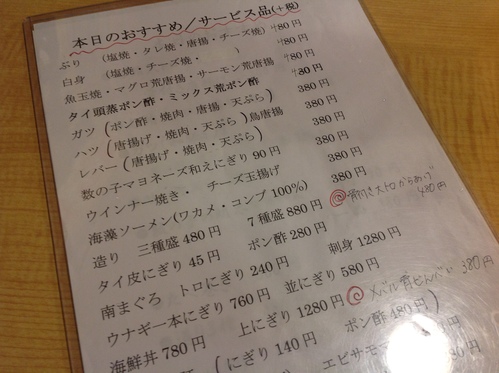 本日のおすすめ/サービス品(+税)
ぶり (塩焼・タレ焼・唐揚・チーズ焼) 480円
白身 (塩焼・チーズ焼・ 480円
魚玉焼・マグロ荒唐揚・サーモン荒唐揚 480円
タイ頭蒸ポン酢・ミックス荒ポン酢 480円
ガツ (ポン酢・焼肉・唐揚・天ぷら) 380円
ハツ (唐揚げ・焼肉・天ぷら) 鳥唐揚 380円
レバー (唐揚げ・焼肉・天ぷら) 380円
数の子マヨネーズ和えにぎり 90円 380円
ウインナー焼き・ チーズ玉揚げ 380円
海藻ソーメン(ワカメ・コンブ 100%) 380円
造り 三種盛 480円 7種盛 880円
480円
タイ皮にぎり 45円 ポン酢 280円
南まぐろ トロにぎり 240円 刺身 1280円
ウナギ一本にぎり 760円 並にぎり 580円
海鮮丼 780円 上にぎり 1280円 メバル 380円
(にぎり 140円 ポン酢 480円)
エビサモ